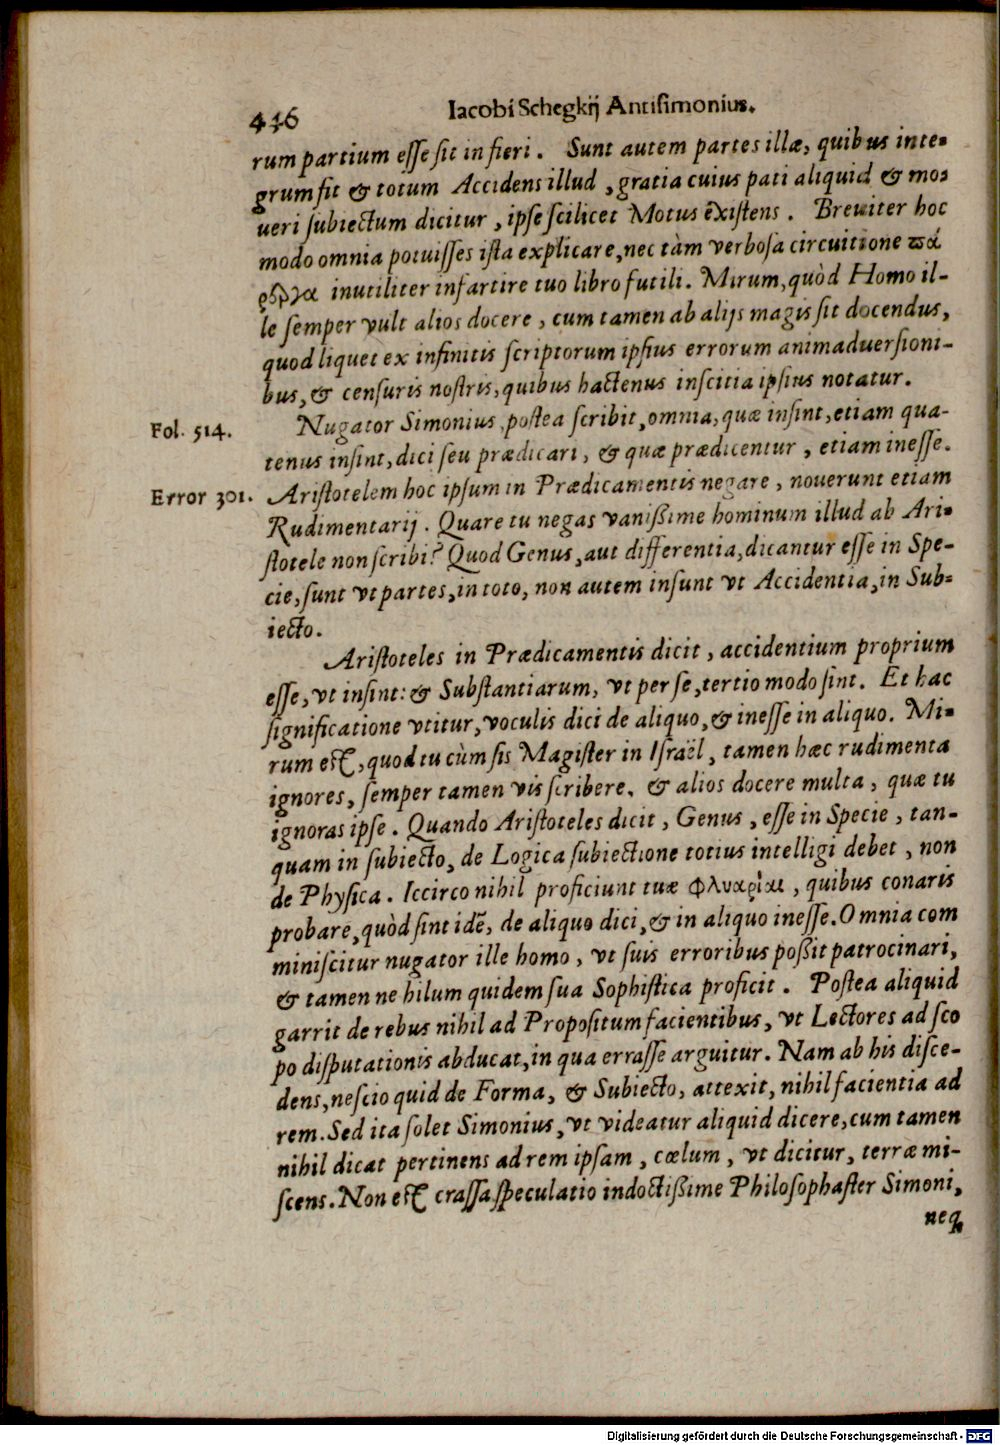 446 Iacobi Schegkij Antisimonius.
rum partium esse sit in fieri. Sunt autem partes illæ, quibus inte-
grum sit & totum Accidens illud, gratia cuius pati aliquid & mo-
ueri subiectum dicitur, ipse scilicet Motus existens. Breuiter hoc
modo omnia potuisses ista explicare, nec tàm verbosa circuitione πά
ρεργα inutiliter infartire tuo libro futili. Mirum, quòd Homo il-
le semper vult alios docere, cum tamen ab alijs magis sit docendus,
quod liquet ex infinitis scriptorum ipsius errorum animaduersioni-
bus, & censuris nostris, quibus hactenus inscitia ipsius notatur.
Fol. 514. Nugator Simonius, postea scribit, omnia, quæ insint, etiam qua-
tenus insint, dici seu prædicari, & quæ prædicentur, etiam inesse.
Error 301. Aristotelem hoc ipsum in Prædicamentis negare, nouerunt etiam
Rudimentarij. Quare tu negas vanißime hominum illud ab Ari-
stotele non scribi? Quod Genus, aut differentia, dicantur esse in Spe-
cie, sunt vt partes, in toto, non autem insunt vt Accidentia, in Sub-
iecto.
Aristoteles in Prædicamentis dicit, accidentium proprium
esse, vt insint: & Substantiarum, vt per se, tertio modo sint. Et hac
significatione vtitur, voculis dici de aliquo, & inesse in aliquo. Mi-
rum est, quod tu cùm sis Magister in Israël, tamen hæc rudimenta
ignores, semper tamen vis scribere, & alios docere multa, quæ tu
ignoras ipse. Quando Aristoteles dicit, Genus, esse in Specie, tan-
quam in subiecto, de Logica subiectione totius intelligi debet, non
de Physica. Iccirco nihil proficiunt tuæ φλυαρίαι, quibus conaris
probare, quòd sint idẽ, de aliquo dici, & in aliquo inesse. Omnia com
miniscitur nugator ille homo, vt suis erroribus poßit patrocinari,
& tamen ne hilum quidem sua Sophistica proficit. Postea aliquid
garrit de rebus nihil ad Propositum facientibus, vt Lectores ad sco
po disputationis abducat, in qua errasse arguitur. Nam ab his disce-
dens, nescio quid de Forma, & Subiecto, attexit, nihil facientia ad
rem. Sed ita solet Simonius, vt videatur aliquid dicere, cum tamen
nihil dicat pertinens ad rem ipsam, cœlum, vt dicitur, terræ mi-
scens. Non est crassa speculatio indoctißime Philosophaster Simoni,
neq;
Digitalisierung gefördert durch die Deutsche Forschungsgemeinschaft - DFG